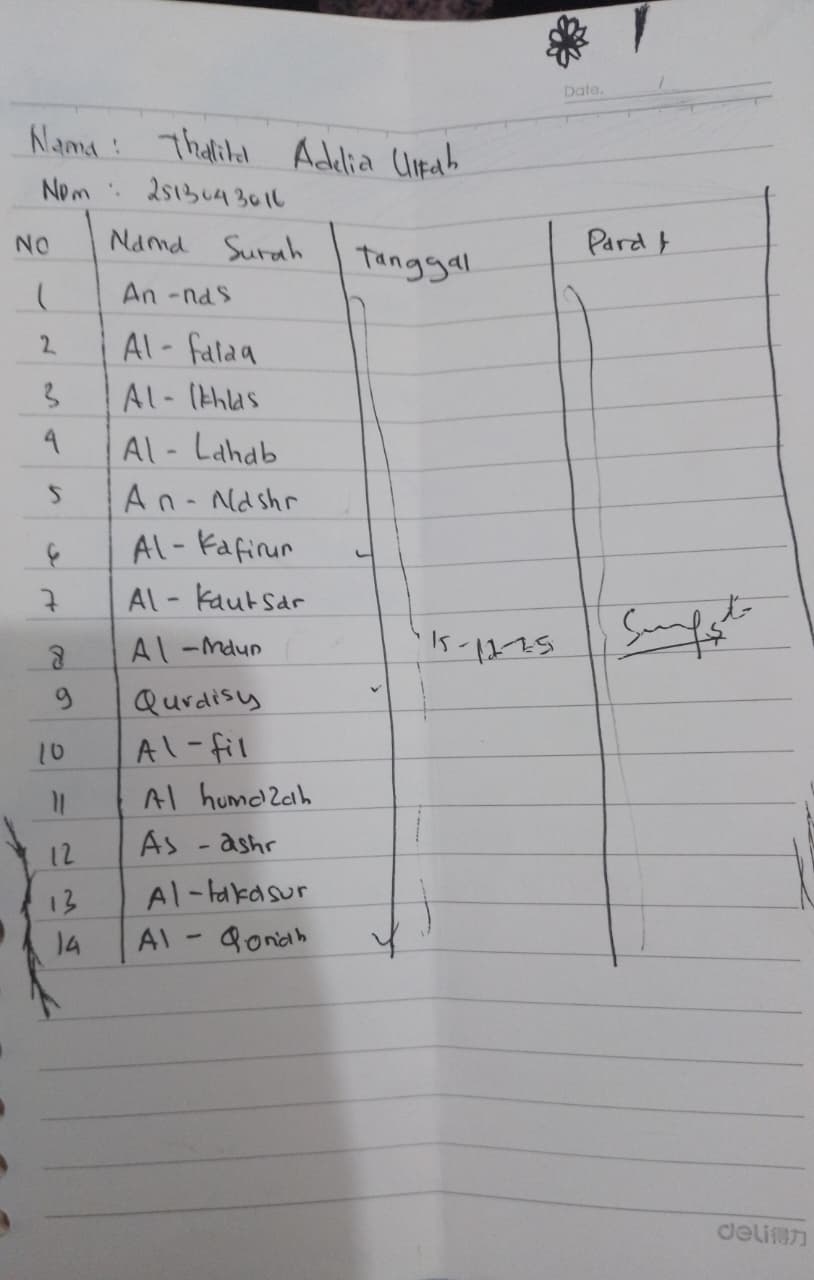 Date.
Nama : Thalita Adelia Ulfah
Npm : 2513043016
NO Nama Surah Tanggal Paraf
1 An-nas
2 Al-falaq
3 Al-Ikhlas
4 Al-Lahab
5 An-Nashr
6 Al-Kafirun
7 Al-Kautsar
8 Al-Maun 15-12-25
9 Quraisy
10 Al-fil
11 Al humazah
12 As-ashr
13 Al-takasur
14 Al-Qoriah
deli得力